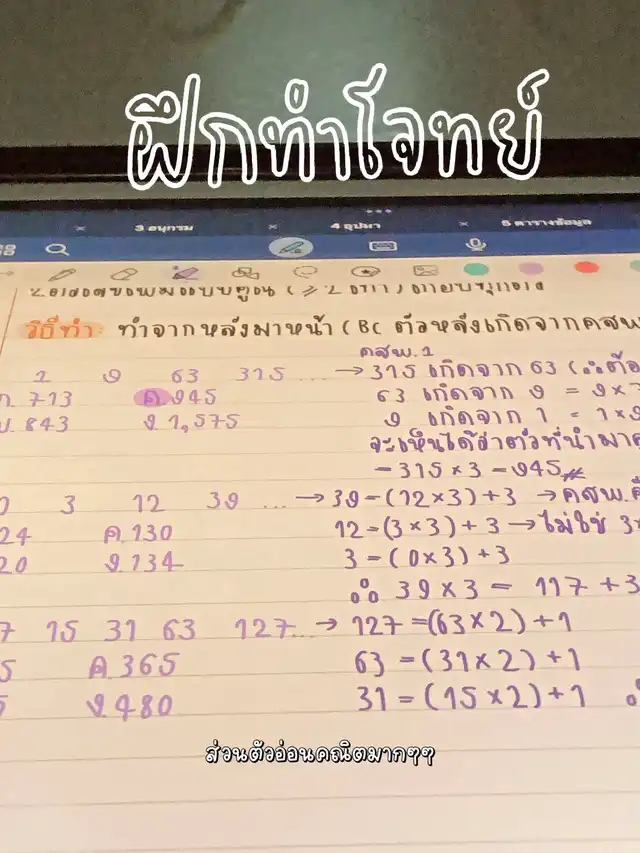 ฝึกทำโจทย์
3 อนุกรม
4 อุปมา
5 ตารางข้อมูล
วิธีทำ ทำจากหลังมาหน้า (BC ตัวหลังเกิดจากคสพ
คสพ. 1
1 9 63 315 ... → 315 เกิดจาก 63 (∴ต้อ
ก. 713 ค. 945 63 เกิดจาก 9 = 9×7
ข. 843 ง. 1,575 9 เกิดจาก 1 = 1×9
จะเห็นได้ว่าตัวที่นำมาค
- 315 × 3 = 945
0 3 12 39 ... → 39 = (12×3)+3 → คสพ.คื
24 ค. 130 12 = (3×3)+3 → ไม่ใช่ 3×
20 ง. 134 3 = (0×3)+3
∴ 39×3 = 117 + 3
7 15 31 63 127... → 127 = (63×2)+1
5 ค. 365 63 = (31×2)+1
5 ง. 480 31 = (15×2)+1
ส่วนตัวอ่อนคณิตมากๆๆ